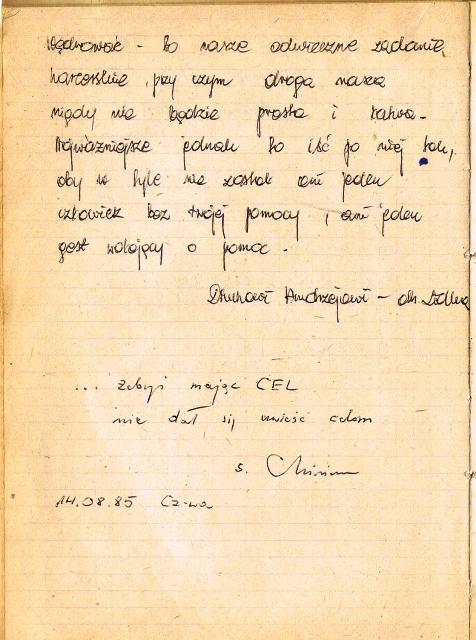 Wędrować - to nasze odwieczne zadanie
harcerskie, przy czym droga nasza
nigdy nie będzie prosta i łatwa.
Najważniejsze jednak to iść po niej tak,
aby w tyle nie został ani jeden
człowiek bez twojej pomocy, ani jeden
gest wołający o pomoc.
Druhowi Andrzejowi - dh.
... żebyś mając CEL
nie dał się unieść celom
s.
14.08.85 Cz-wa